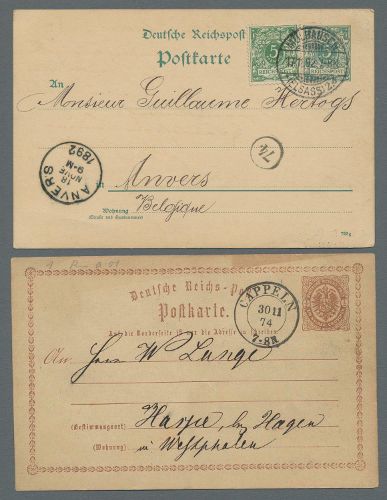 Deutsche Reichspost
Postkarte
5
REICHSPOST
REICHSPOST
MÜLHAUSEN
(ELSASS)
An
Monsieur Guillaume Hertogs
74
ANVERS
18
NOVE
9-M
1892
in
Anvers
Wohnung
(Straße und Hausnummer)
Belgique
Deutsche Reichs-Po
Postkarte.
CAPPELN
30 11
74
7-8N
Auf die Vorderseite ist nur die Adresse zu schreiben
An
Herrn W Lange
(Bestimmungsort)
bey Hagen
(Wohnung)
in Westphalen